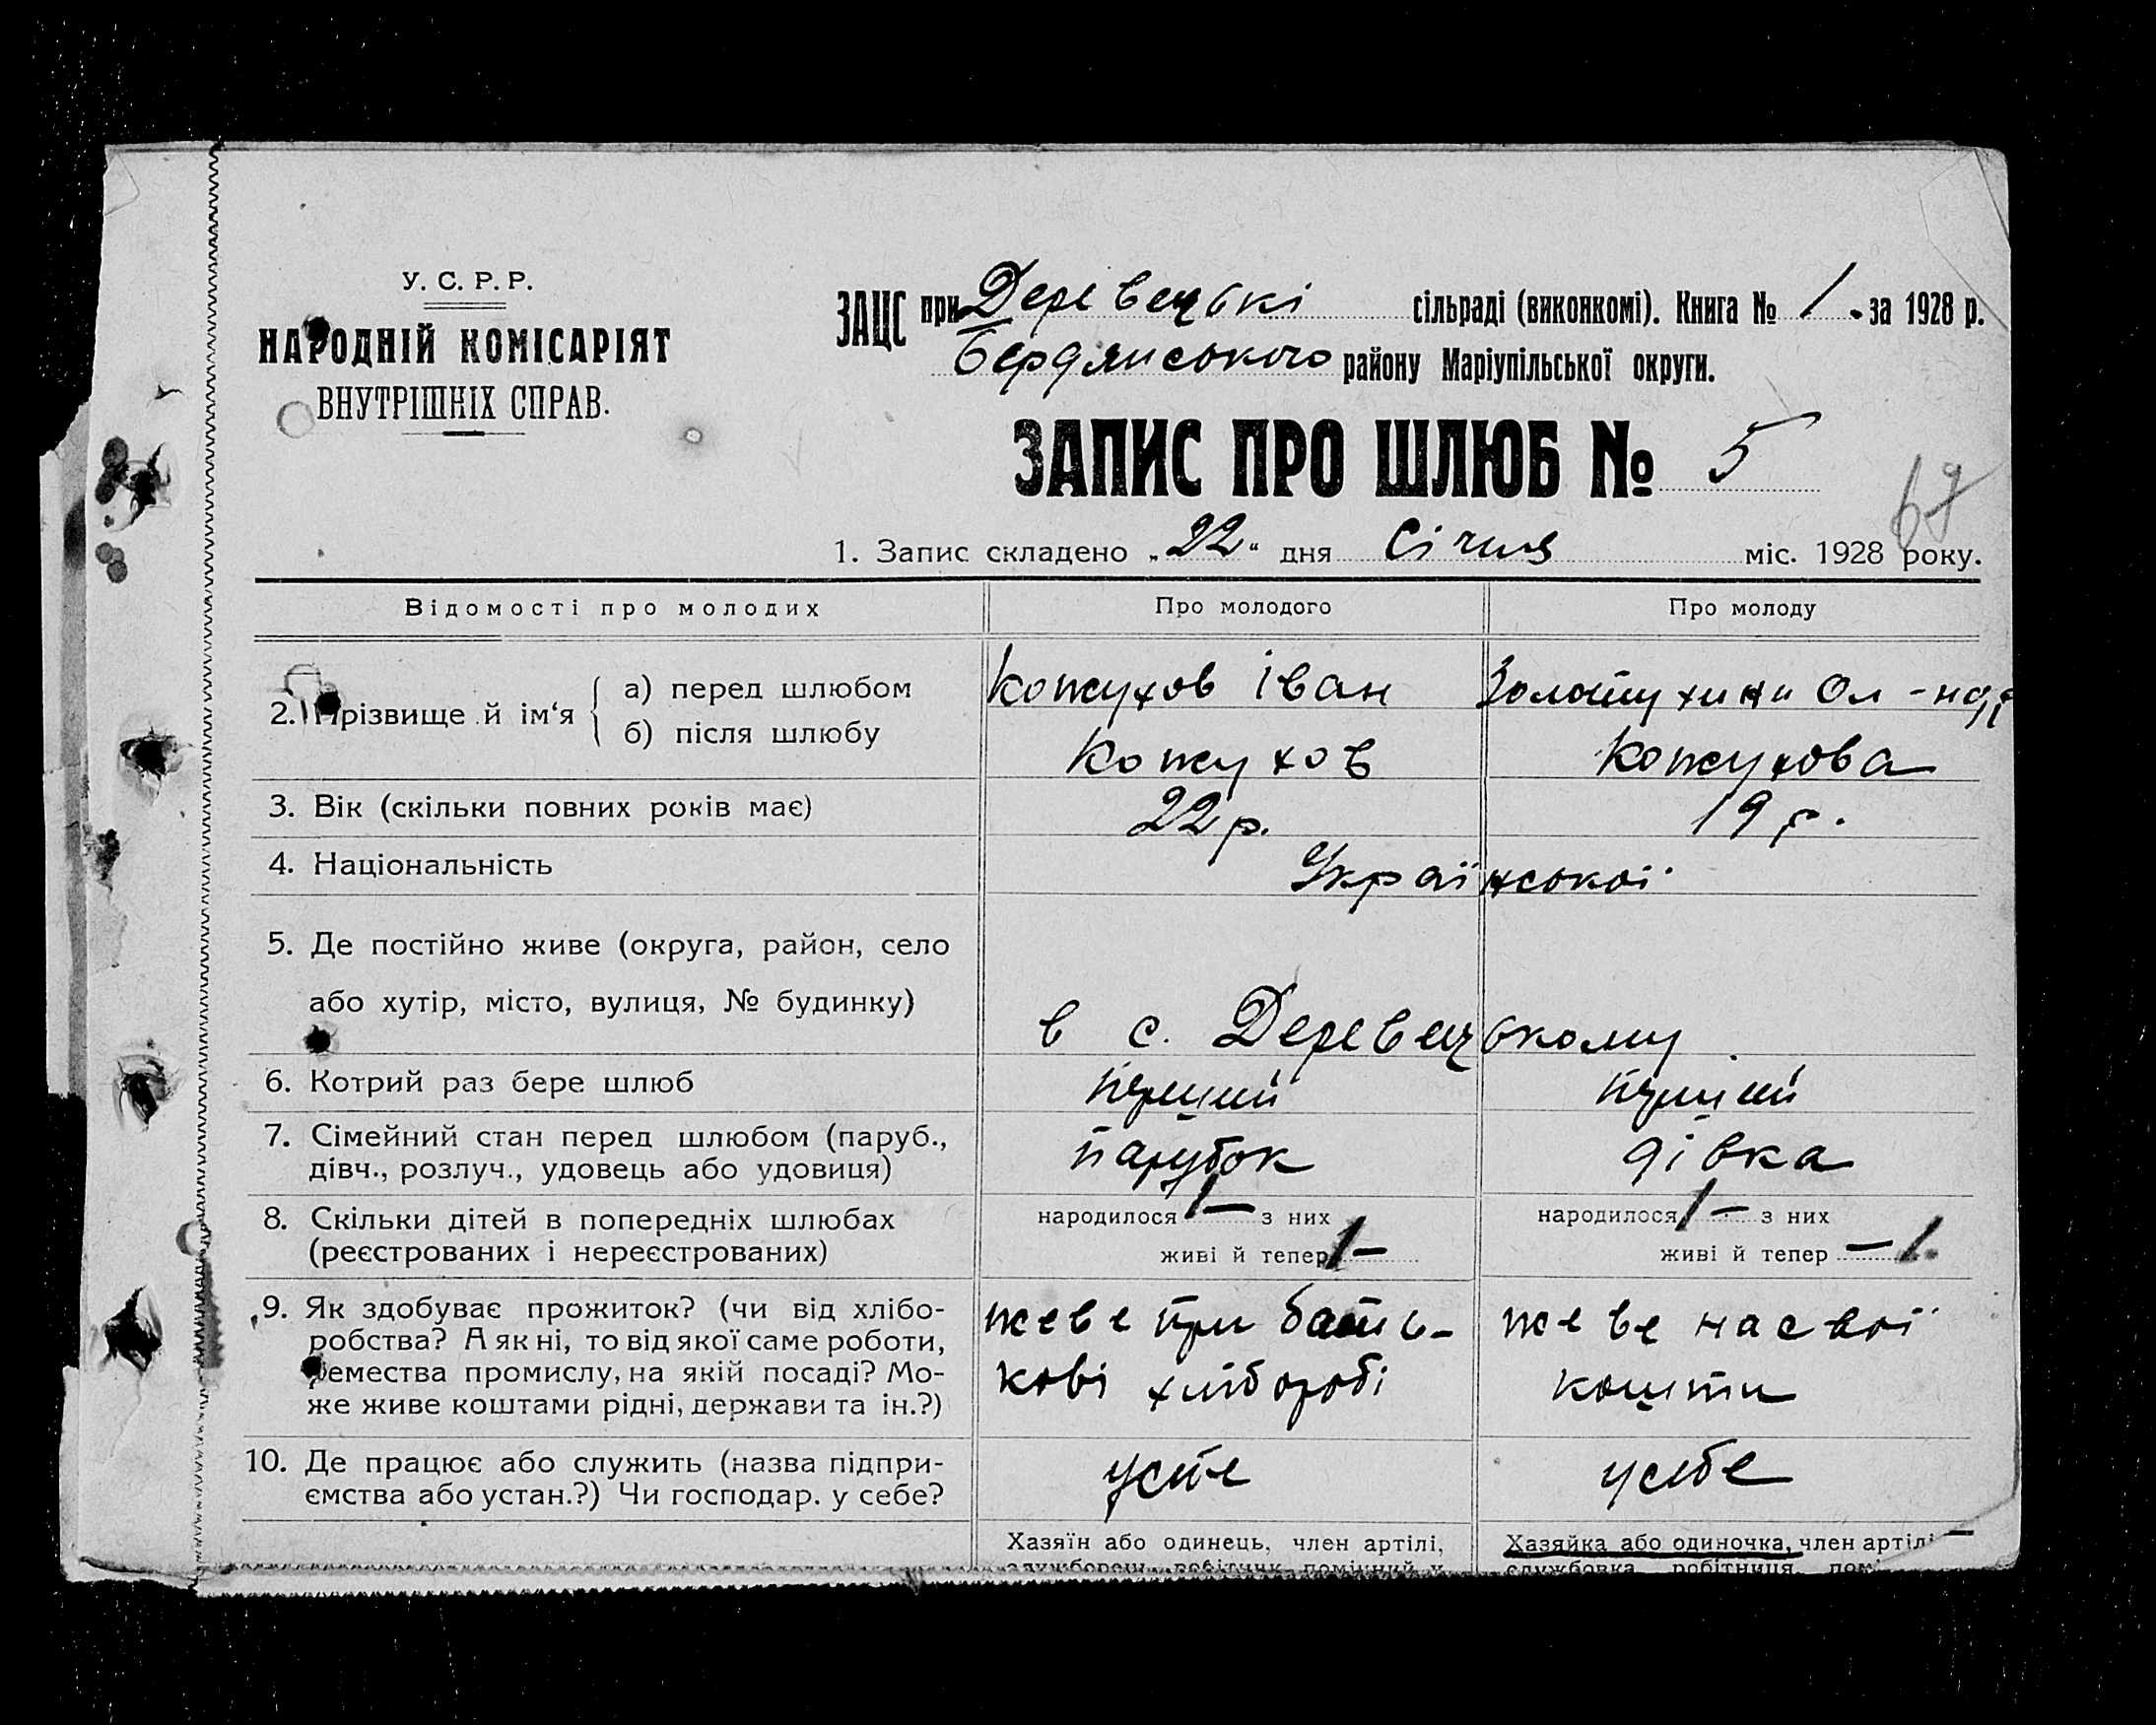 У. С. Р. Р.
НАРОДНІЙ КОМІСАРІЯТ
ВНУТРІШНІХ СПРАВ.
ЗАЦС при Деревецькі сільраді (виконкомі). Книга № 1 за 1928 р.
Бердянського району Маріупільської округи.
ЗАПИС ПРО ШЛЮБ № 5
67
1. Запис складено „22“ дня Січня міс. 1928 року.
Відомості про молодих Про молодого Про молоду
2. Прізвище й ім‘я а) перед шлюбом Кожухов Іван
б) після шлюбу Кожухов Кожухова
3. Вік (скільки повних років має) 22 р. 19 р.
4. Національність Української
5. Де постійно живе (округа, район, село
або хутір, місто, вулиця, № будинку) в с. Деревецькому
6. Котрий раз бере шлюб перший перший
7. Сімейний стан перед шлюбом (паруб.,
дівч., розлуч., удовець або удовиця) парубок дівка
8. Скільки дітей в попередніх шлюбах народилося 1— з них народилося 1— з них
(реєстрованих і нереєстрованих) живі й тепер 1— живі й тепер —1
9. Як здобуває прожиток? (чи від хлібо- жеве при бать- жеве на свої
робства? А як ні, то від якої саме роботи,
ремества промислу, на якій посаді? Мо- кові хліборобі кошти
же живе коштами рідні, держави та ін.?)
10. Де працює або служить (назва підпри- усебе
ємства або устан.?) Чи господар. у себе?
Хазяїн або одинець, член артілі, Хазяйка або одиночка, член артілі
службовка робітниця